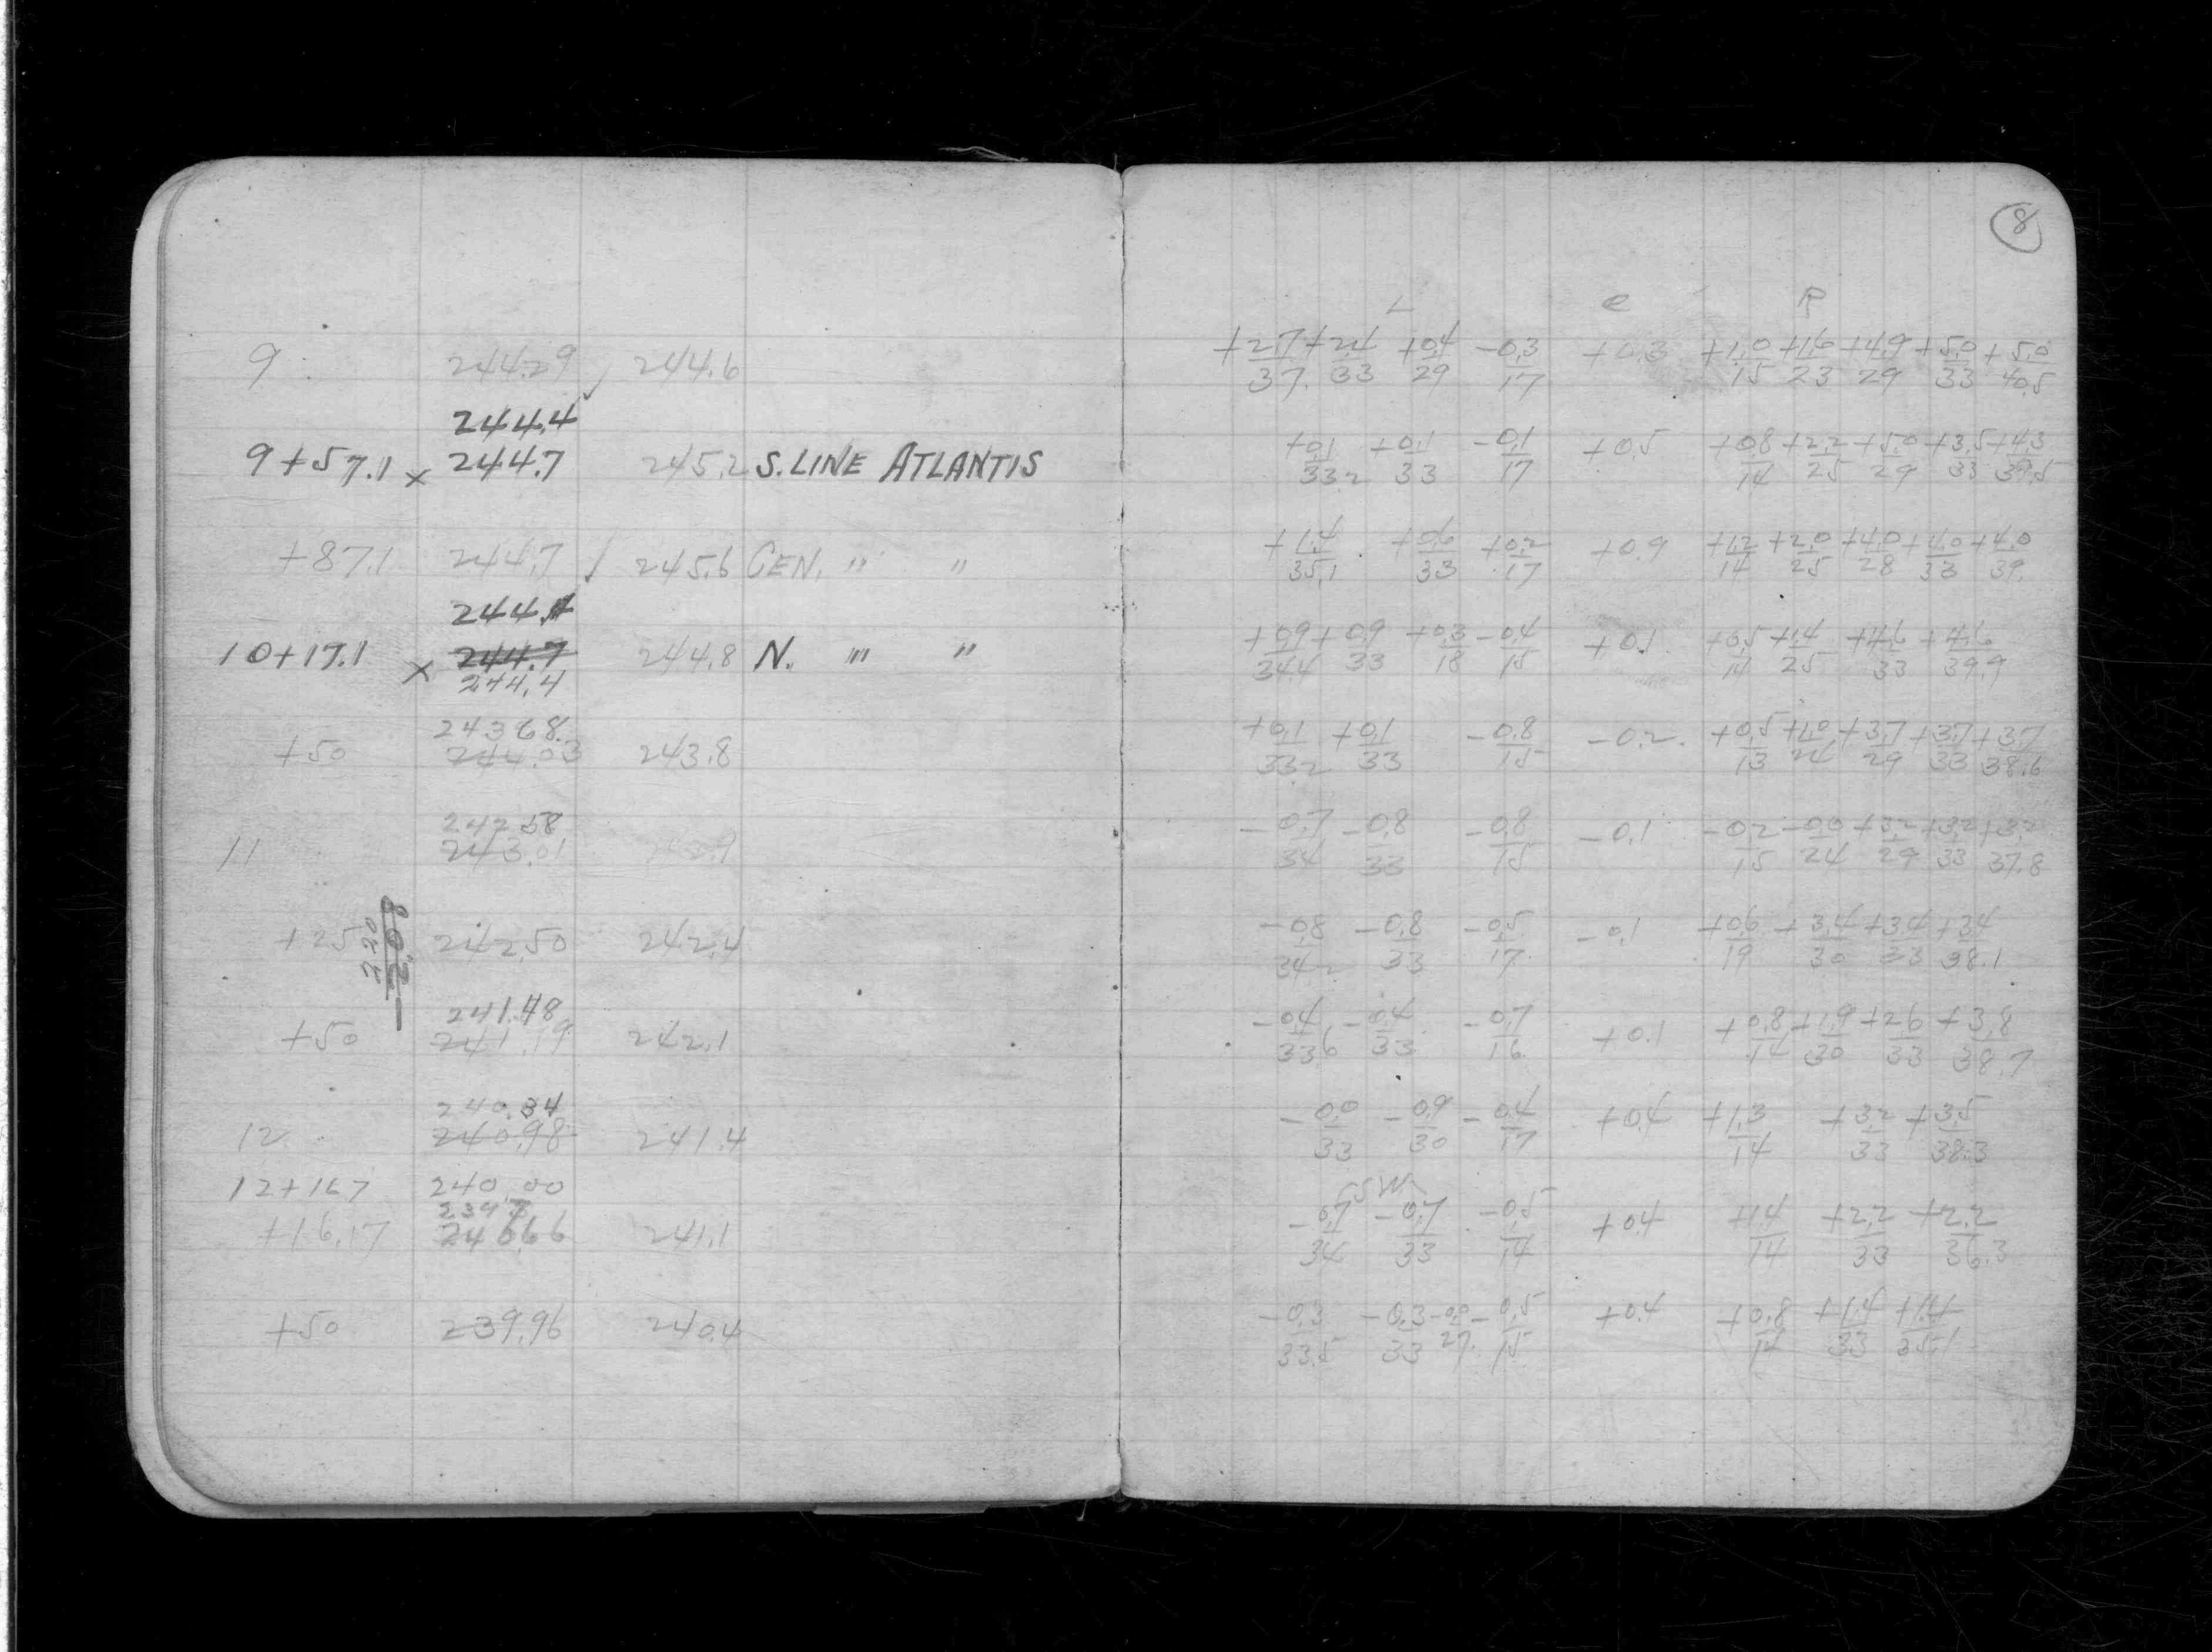 8
L C R
9 244.29 244.6 +2.7/37. +2.4/33 +0.4/29 -0.3/17 +0.3 +1.0/15 +1.6/23 +4.9/29 +5.0/33 +5.0/40.5
244.4
9+57.1 x 244.7 245.2 S. LINE ATLANTIS +0.1/33.2 +0.1/33 -0.1/17 +0.5 +0.8/14 +2.2/25 +5.0/29 +3.5/33 +4.3/39.5
+87.1 244.7 245.6 CEN. " " +1.4/35.1 +0.6/33 +0.2/17 +0.9 +1.2/14 +2.0/25 +4.0/28 +4.0/33 +4.0/39.
244.4
10+17.1 x 244.7 244.8 N. " " +0.9/34.4 +0.9/33 +0.3/18 -0.4/15 +0.1 +0.5/14 +1.4/25 +4.6/33 +4.6/39.9
244.4
243.68
+50 244.03 243.8 +0.1/33.2 +0.1/33 -0.8/15 -0.2 +0.5/13 +1.0/24 +3.7/29 +3.7/33 +3.7/38.6
242.58
11 243.01 -0.7/34 -0.8/33 -0.8/15 -0.1 -0.2/15 -0.0/24 +3.2/29 +3.2/33 +3.2/37.8
220
2.08
+25 242.50 242.4 -0.8/34.2 -0.8/33 -0.5/17 -0.1 +0.6/19 +3.4/30 +3.4/33 +3.4/38.1
241.48
+50 241.19 242.1 -0.4/33.6 -0.4/33 -0.7/16 +0.1 +0.8/14 +1.9/30 +2.6/33 +3.8/38.7
240.34
12 240.98 241.4 -0.0/33 -0.9/30 -0.4/17 +0.4 +1.3/14 +3.2/33 +3.5/38.3
12+16.7 240.00 SW
239.7
+16.17 240.66 241.1 -0.7/34 -0.7/33 -0.5/14 +0.4 +1.4/14 +2.2/33 +2.2/36.3
+50 239.96 240.4 -0.3/33.5 -0.3/33 -0.5/15 +0.4 +0.8/14 +1.4/33 +1.4/35.1